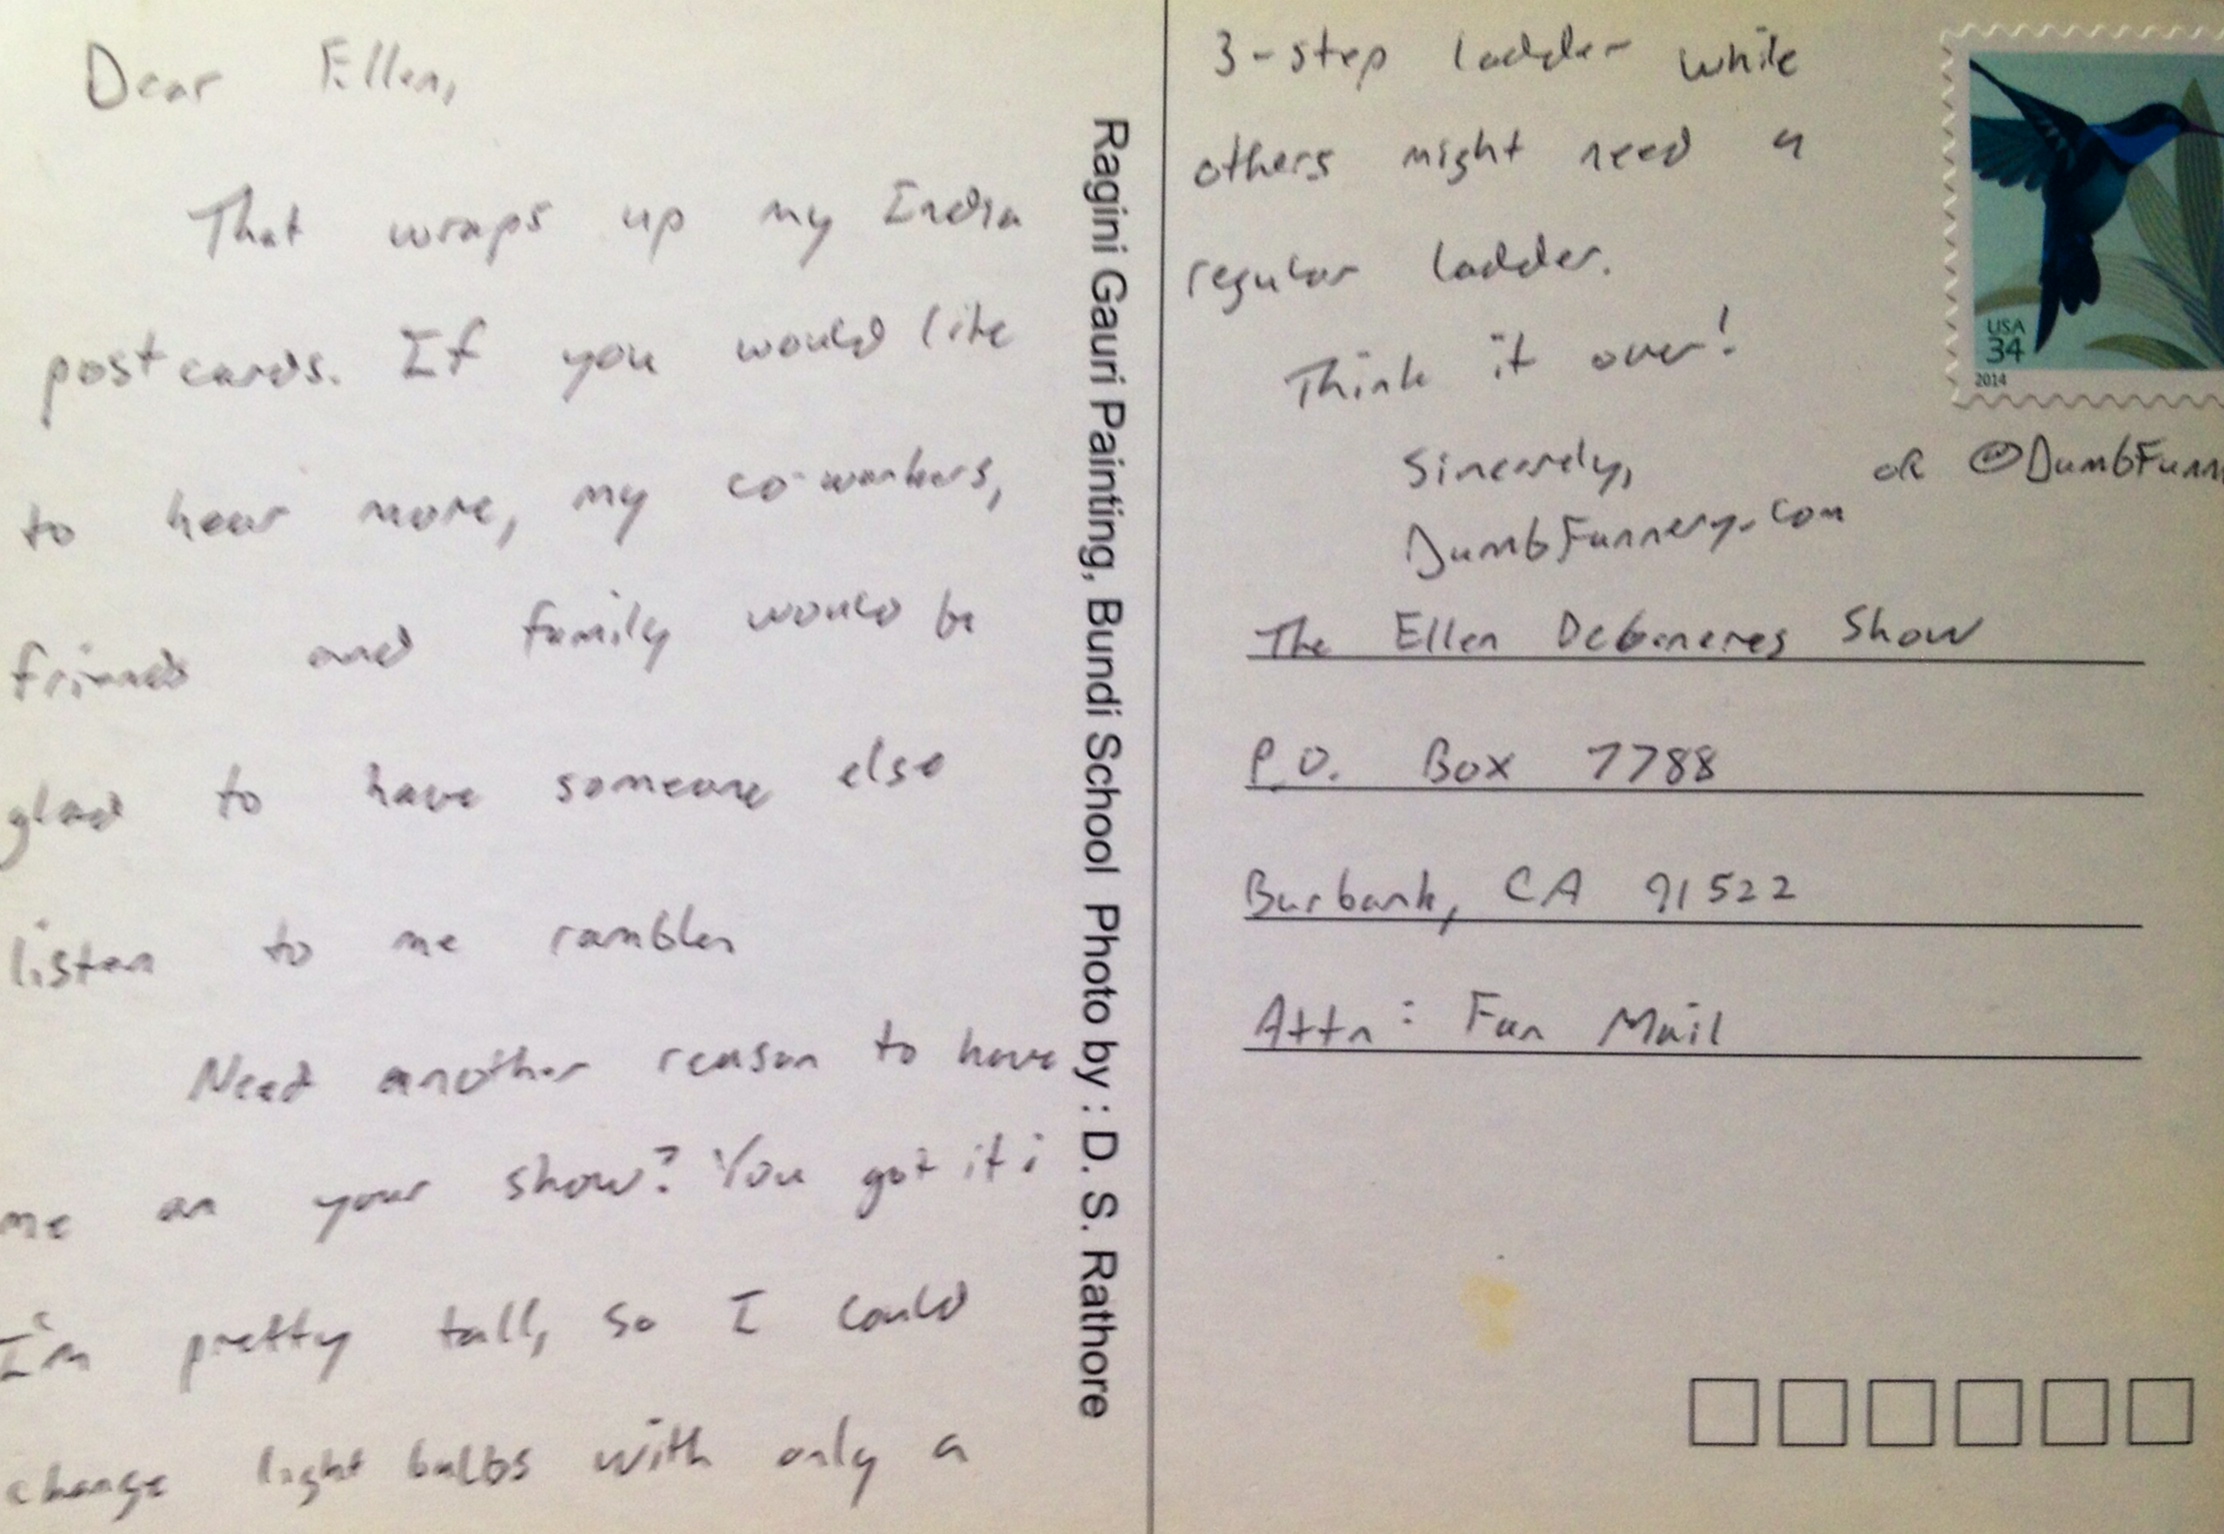 Dear Ellen,
That wraps up my India
postcards. If you would like
to hear more, my co-workers,
friends and family would be
glad to have someone else
listen to me ramble.
Need another reason to have
me on your show? You got it:
I'm pretty tall, so I could
change light bulbs with only a
Ragini Gauri Painting, Bundi School Photo by : D. S. Rathore
3-step ladder while
others might need a
regular ladder.
Think it over!
Sincerely,
DumbFunnery.com or @DumbFunn
USA
34
2014
The Ellen Degeneres Show
P.O. Box 7788
Burbank, CA 91522
Attn: Fan Mail